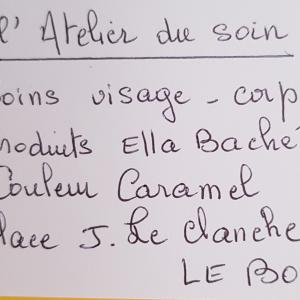 l'Atelier du soin
oins visage - corp
roduits Ella Baché
Couleur Caramel
lace J. Le Clanche
LE BO